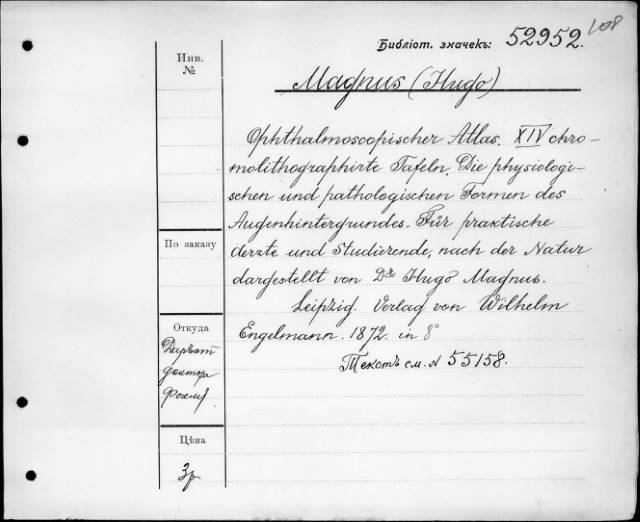 Библіот. значекъ: 52952.
108
Инв.
№
Magnus (Hugo)
Ophthalmoscopischer Atlas. XIV chro-
molithographirte Tafeln. Die physiologi-
schen und pathologischen Formen des
Augenhintergrundes. Für praktische
Aerzte und Studierende, nach der Natur
dargestellt von Dr. Hugo Magnus.
Leipzig. Verlag von Wilhelm
Engelmann. 1872. in 8°
Текстъ см. № 55158.
По заказу
Откуда
доктора
Цѣна
3р